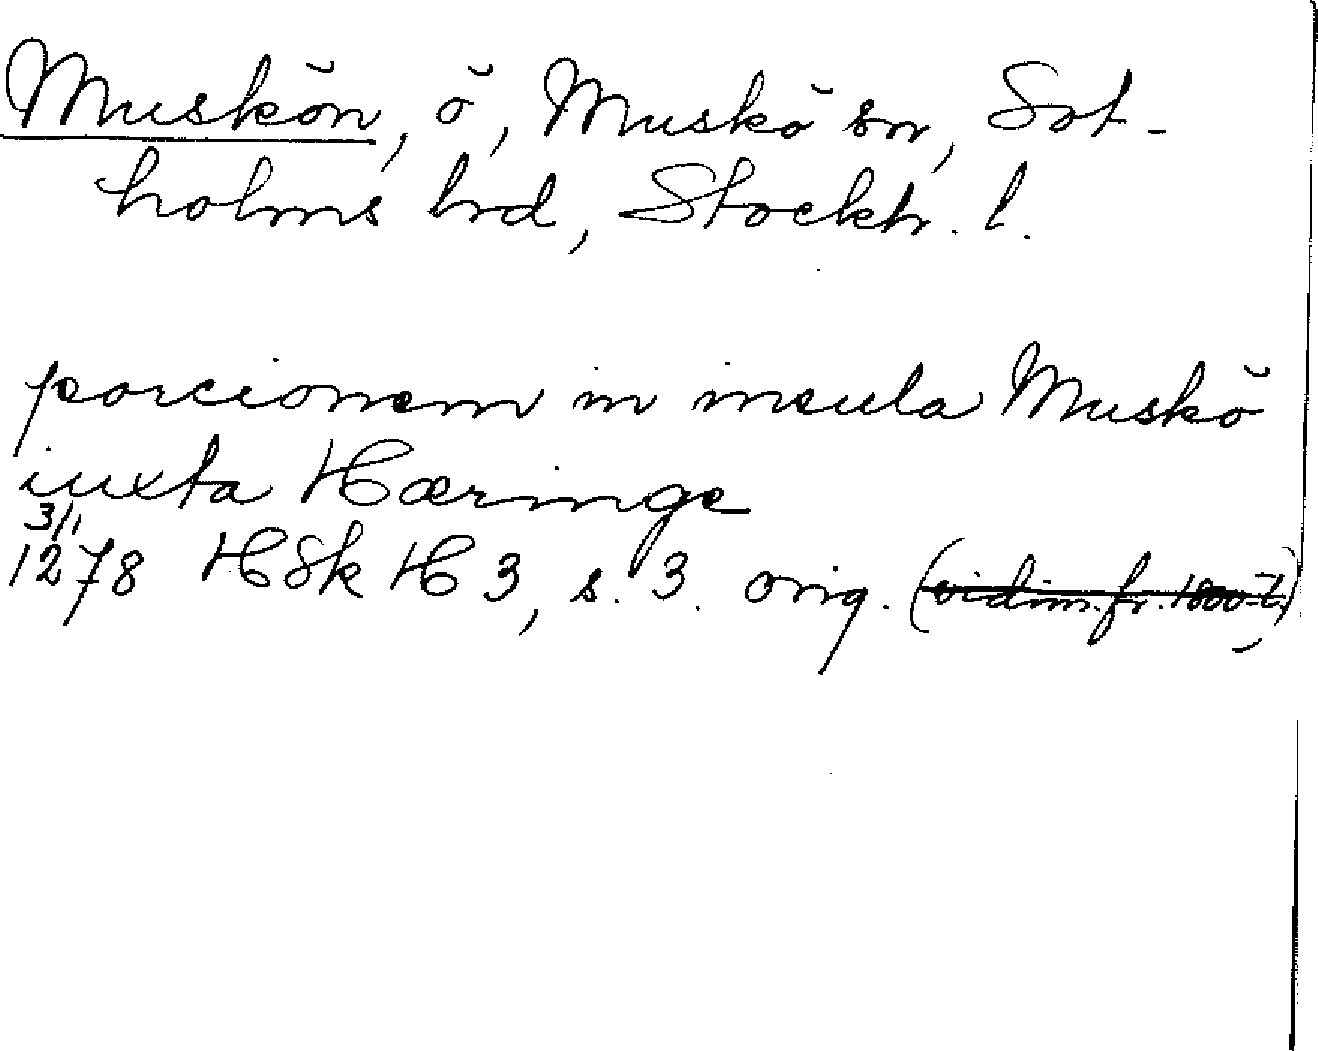 Muskön, ö, Muskö sn, Sot-
holms hrd, Stockh. l.
porcionem in insula Muskö
iuxta Hæringe
3/1
1278 HSk H 3, s. 3. orig. (vidim. fr. 1800-t.)